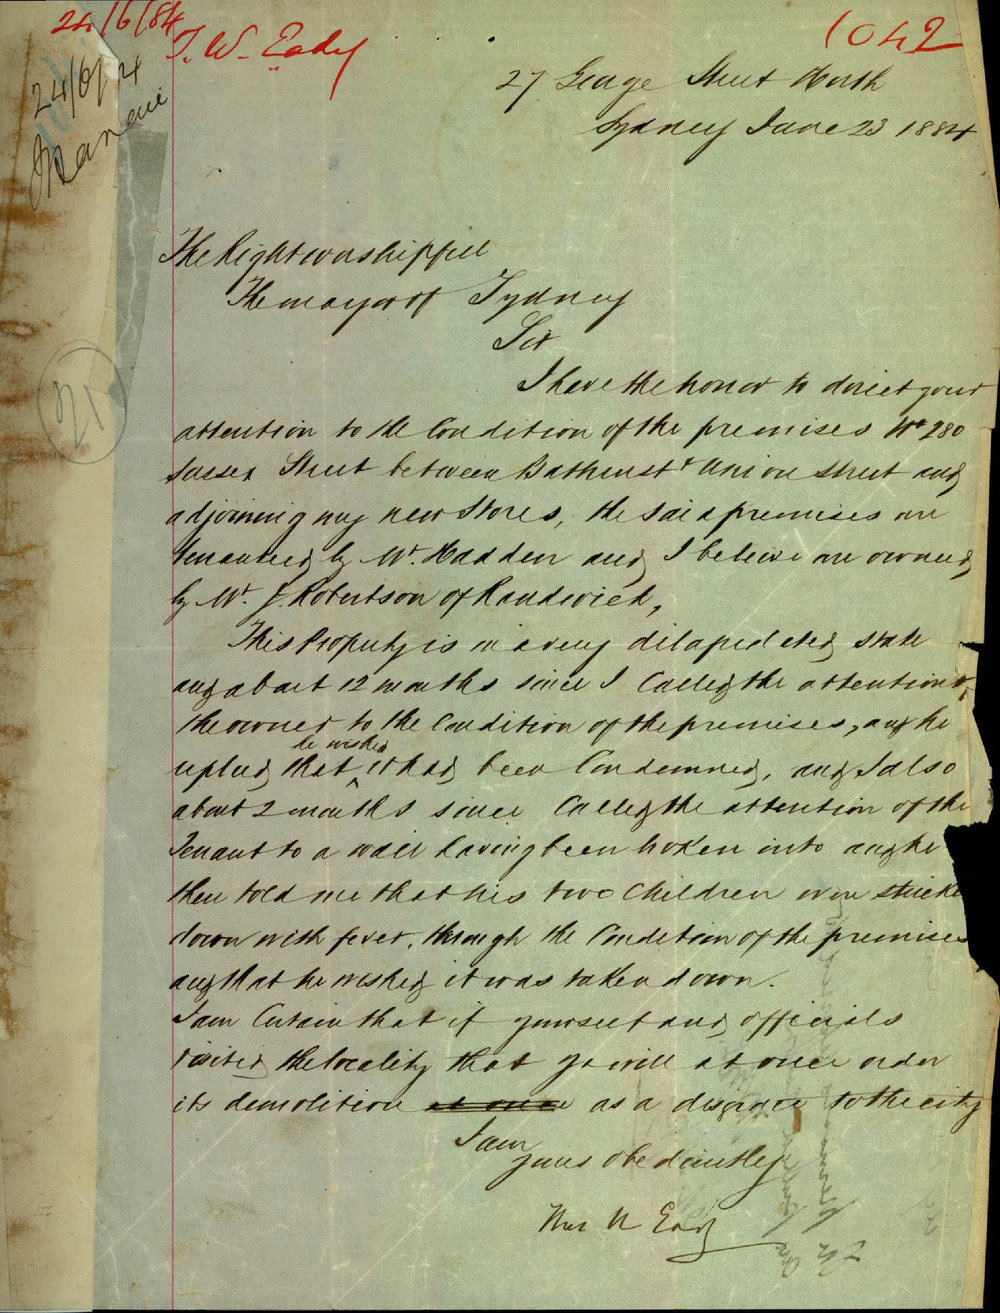 24/6/84
T. W. Eady
1042
24/6/84
27 George Street North
Sydney June 23 1884
The Right worshipfull
The mayor of Sydney
Sir
I have the honor to direct your
attention to the Condition of the premises No 280
Sussex Street between Bathurst & Union Street and
adjoining my new Stores, the said premises are
tenanted by Mr. Hadden and I believe are owned
by Mr. J. Robertson of Randwick,
This Property is in a very dilapedeted state
and about 12 months since I Called the attention of
the owner to the Condition of the premises, and he
replied that he wished it had been Condemned, and I also
about 2 months since Called the attention of the
Tenant to a wall having been broken into and he
then told me that his two Children were stricke
down with fever, through the Condition of the premises
and that he wished it was taken down.
I am Certain that if yourself and officials
visited the locality that yo will at once order
its demolition at once as a disgrace to the city
I am
yours obediantley
Thos W Eady